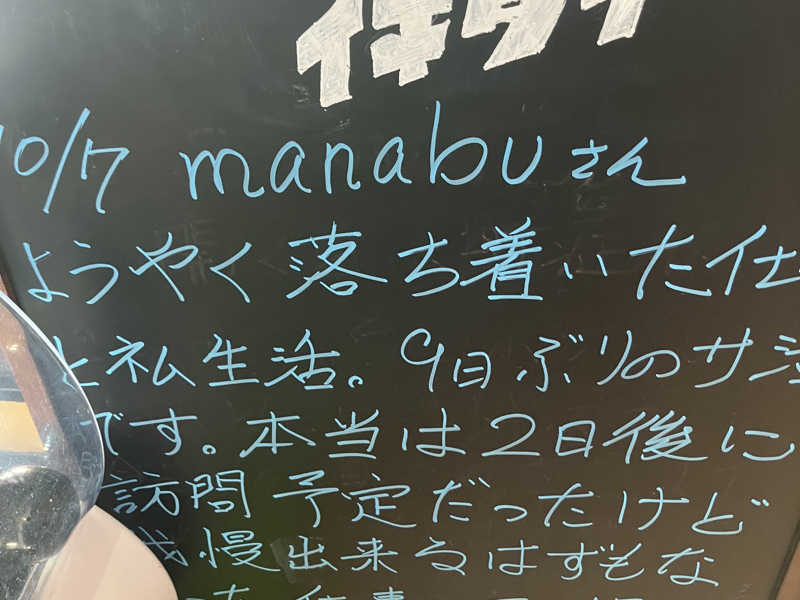 10/7 manabuさん
ようやく落ち着いた仕
と私生活。9日ぶりのサ活
です。本当は2日後に
訪問予定だったけど
我慢出来るはずもな